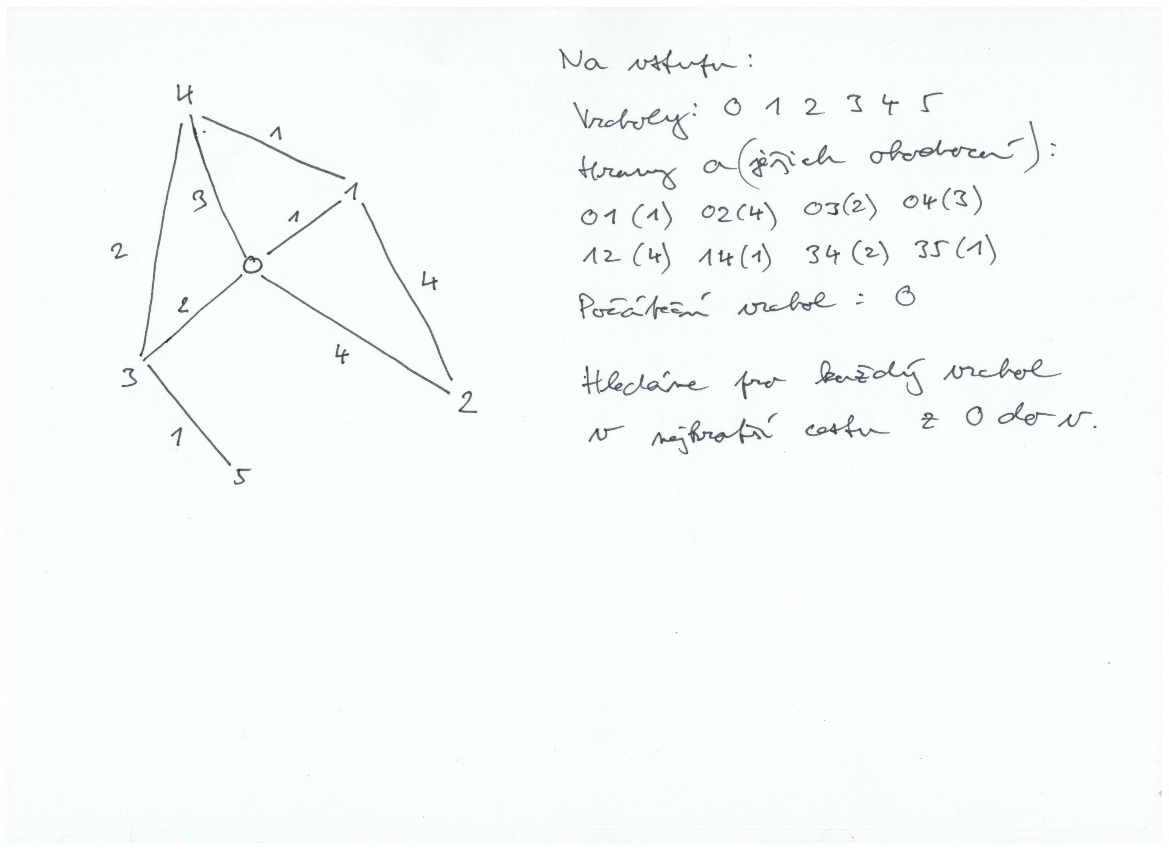 4
1
3
1
1
2
0
4
2
4
3
2
1
5
Na vstupu:
Vrcholy: 0 1 2 3 4 5
Hrany a (jejich ohodnocení):
01 (1) 02(4) 03(2) 04(3)
12 (4) 14(1) 34 (2) 35(1)
Počáteční vrchol : 0
Hledáme pro každý vrchol
v nejkratší cestu z 0 do v.